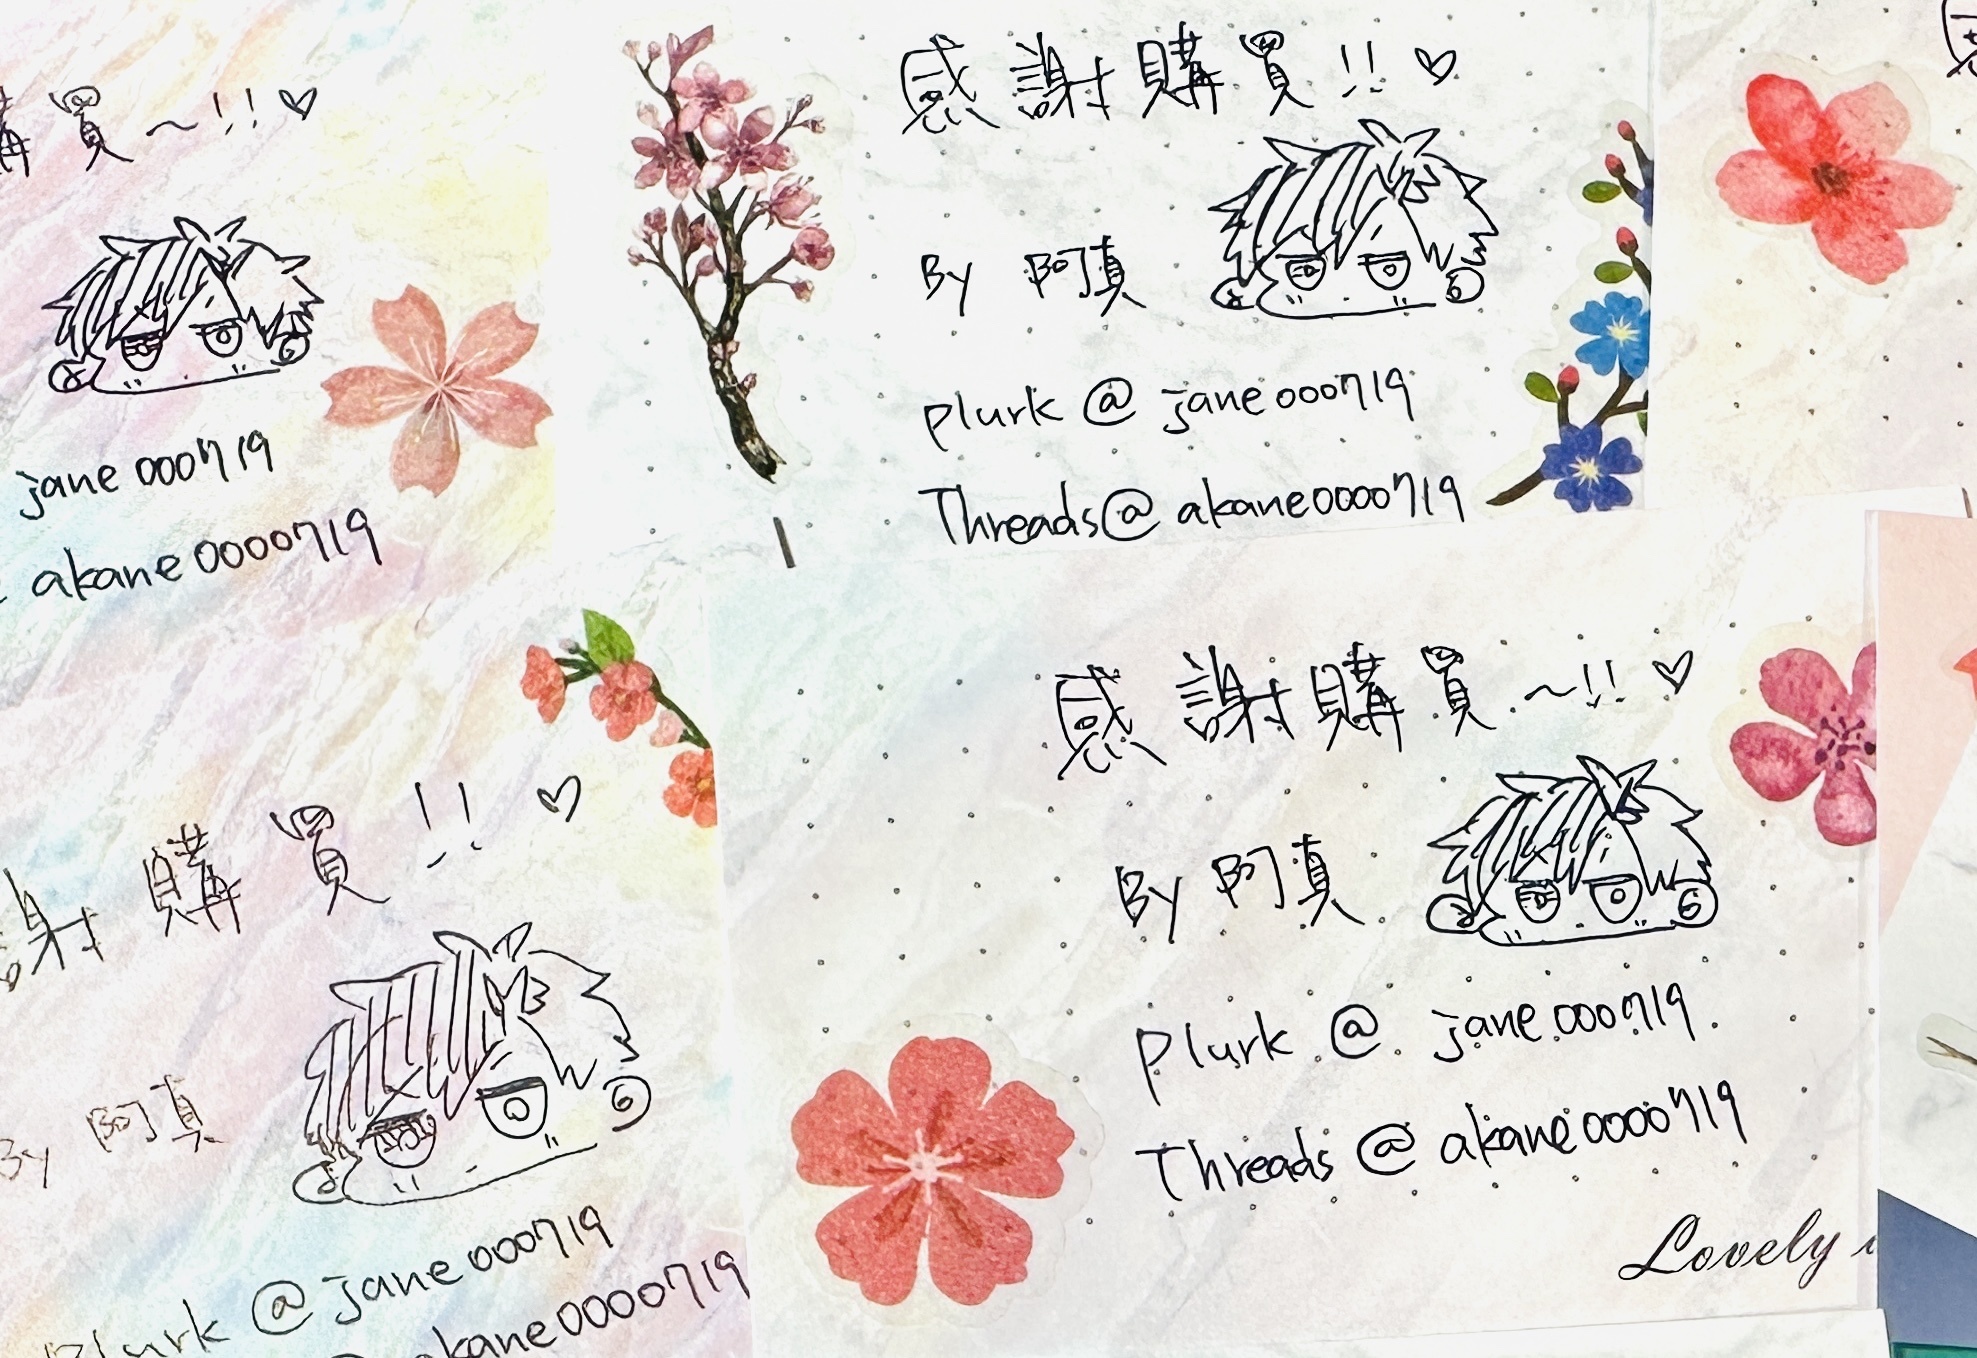 購買~!!♡
jane000719
akane0000719
感謝購買!!♡
By 阿真
plurk @ jane000719
Threads@ akane0000719
謝購買!!♡
By 阿真
Plurk @ jane000719
akane0000719
感謝購買~!!♡
By 阿真
Plurk @ jane000719
Threads @ akane0000719
Lovely